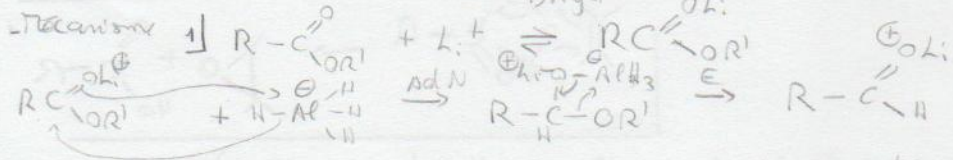 OLi
-Mécanisme 1] R-C(=O)OR' + Li⁺ ⇌ RC(=OLi)OR'
RC(=OLi⊕)OR' + H-Al⊖H H H →AdN ⊕Li-O-Al⊖H₃ R-CH-OR' →E R-C(=OLi⊕)H